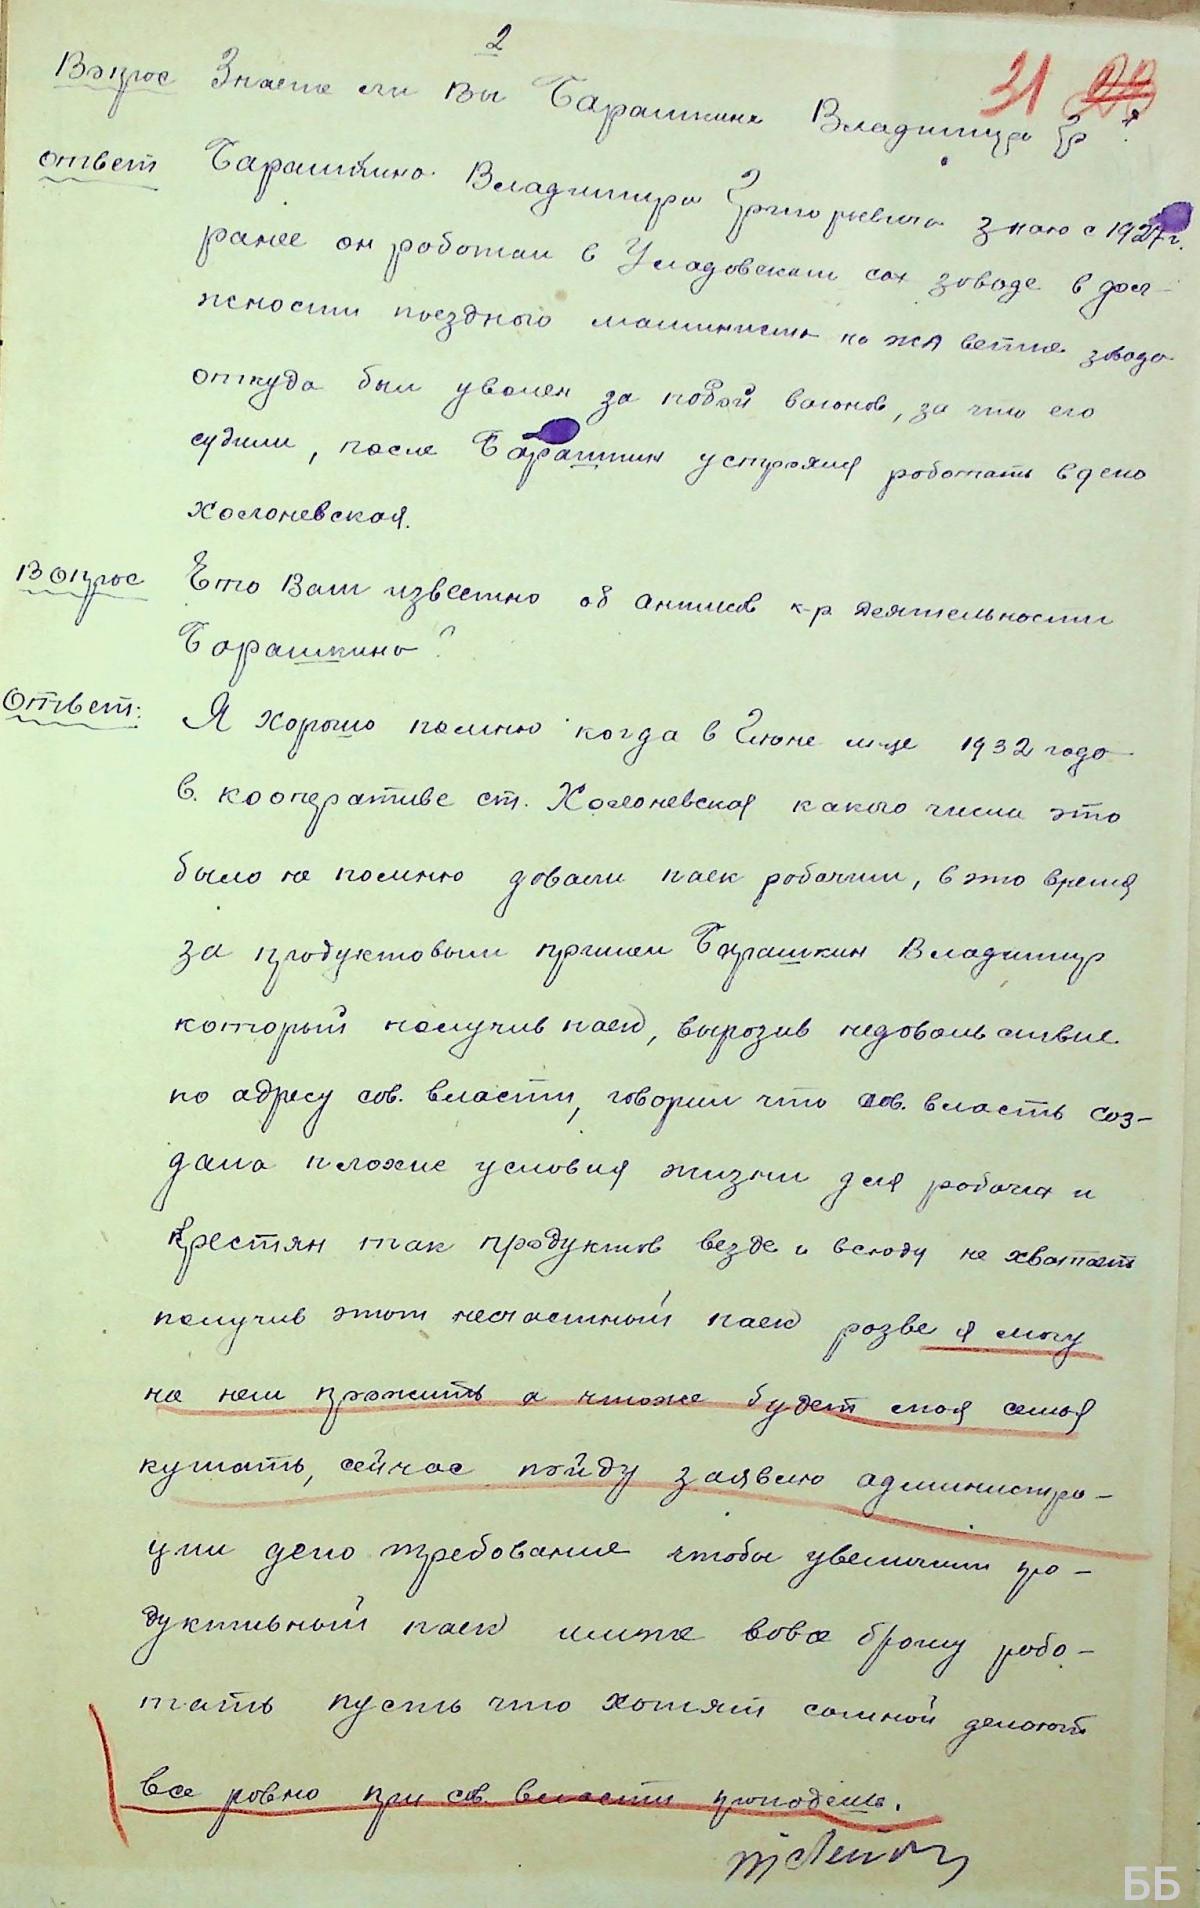 2
31 28
Вопрос Знаете ли Вы Барашкина Владимира Гр?
ответ Барашкина Владимира Григоревича знаю с 1927 г.
ранее он работал в Уладовскам сах заводе в дол-
жности поездного машиниста на жд ветке завода
откуда был уволен за побой вагонов, за что его
судили, после Барашкин устроялся роботать в депо
Холоневская.
Вопрос Что Вам известно об антисов к-р деятельности
Барашкина?
Ответ: Я хорошо помню когда в Июне м-це 1932 года
в кооперативе ст. Холоневская какого числа это
было не помню довали паек робочим, в это время
за продуктовым пришел Барашкин Владимир
который получив паек, вырозив недовольствие
по адресу сов. власти, говорил что сов. власть соз-
дала плохие условия жизни для робочих и
крестян так продуктов везде и всюду не хватает
получив этот несчастный паек розве я могу
на нем прожить а чтоже будет моя семья
кушать, сейчас пойду заявлю администра-
ции депо требование чтобы увеличили про-
дуктивный паек илиже вовсе брошу робо-
тать пусть что хотят сомной делают
все ровно при сов. власти пропадешь.
ББ